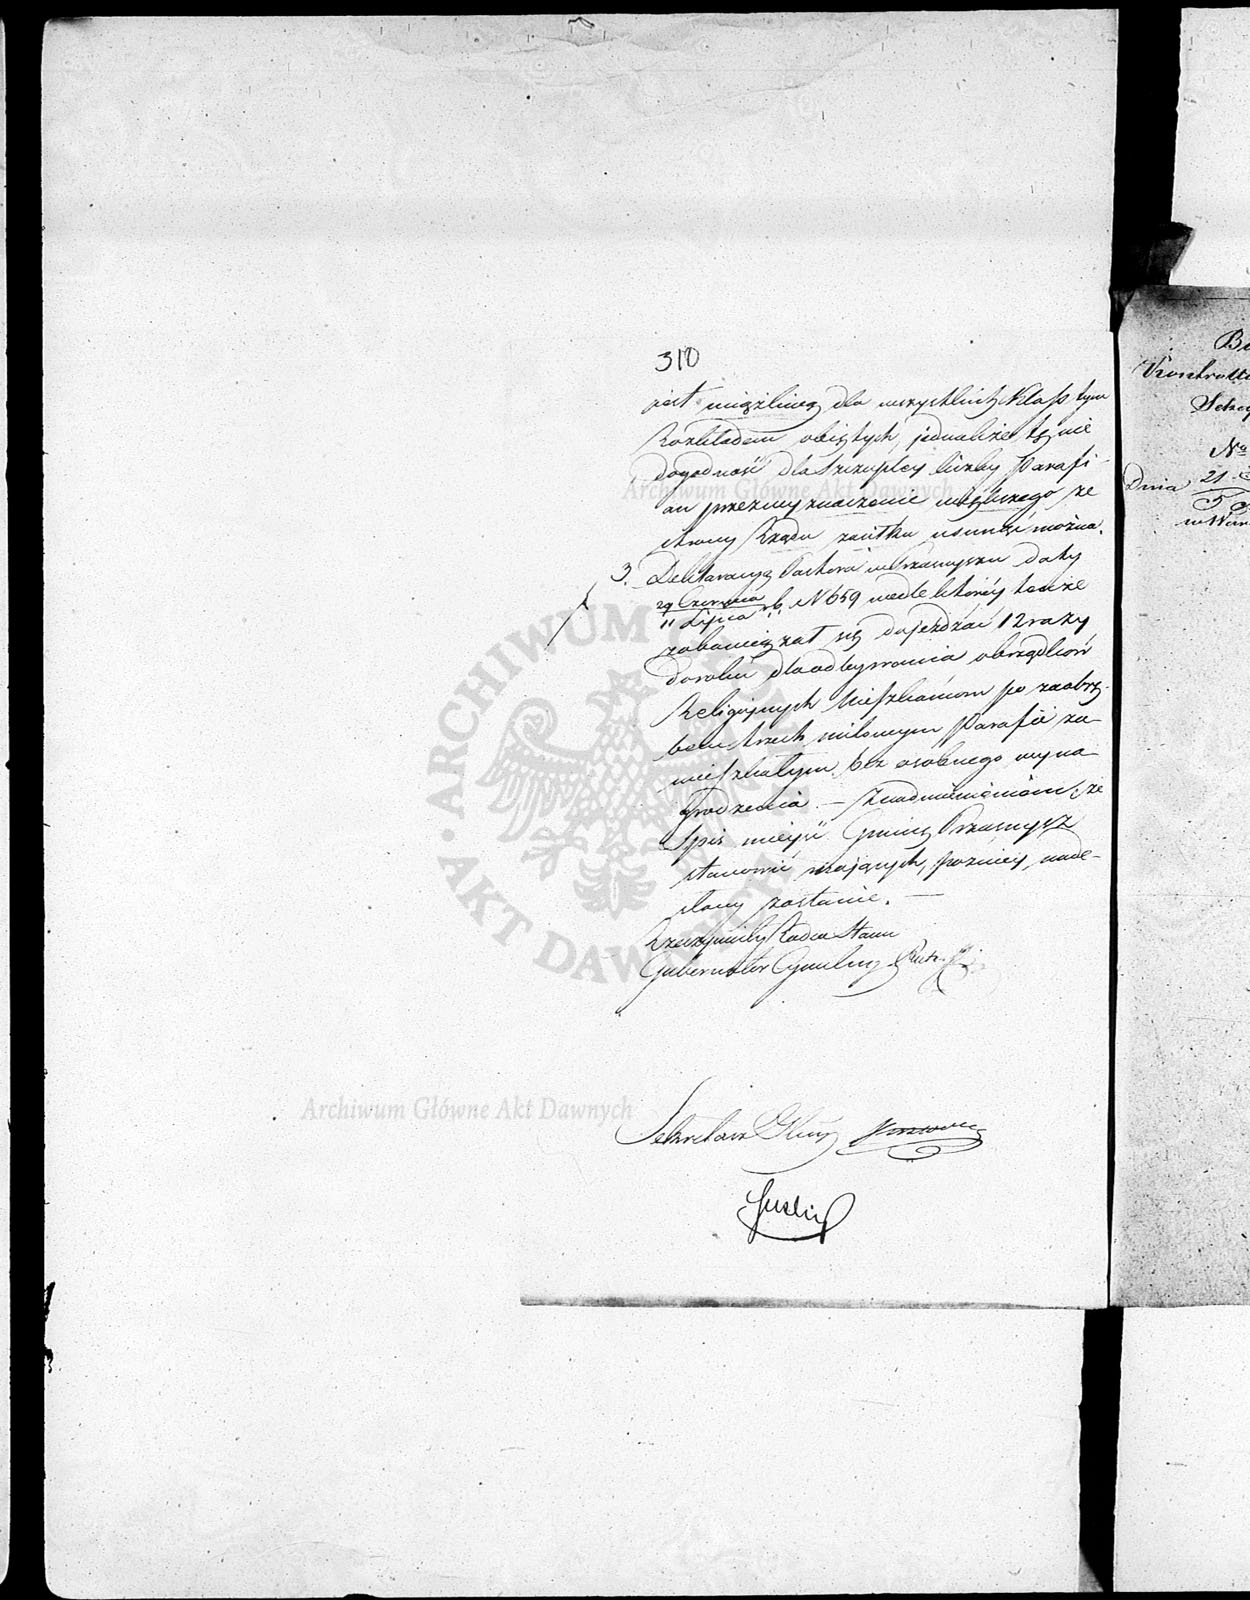 310
jest uciążliwą dla wszystkich Klass tym
Rozkładem objętych, jednakże tę nie
dogodność dla szczupłey liczby Parafi-
an przez wyznaczenie większego ze
strony Rządu zasiłku usunąć można.
3. Deklaracyą Pastora w Przasnyszu daty
29 Czerwca
" Lipca rb. N 659 wedle którey tenże
zobowiązał się dojeżdżać 12 razy
do roku dla odbywania obrządków
Religijnych Mieszkańcom po za obrę-
bem trzech milowym Parafii za-
mieszkałym bez osobnego wyna-
grodzenia. — Z nadmienieniem, że
Spis mieysc Gminę Przasnysz
stanowić mających, poźniey nade-
słany zostanie. —
Rzeczywisty Radca Stanu
Gubernator Cywilny
Sekretarz
Archiwum Główne Akt Dawnych
Archiwum Główne Akt Dawnych
ARCHIWUM GŁÓWNE AKT DAWNYCH
No
Dnia 21
5